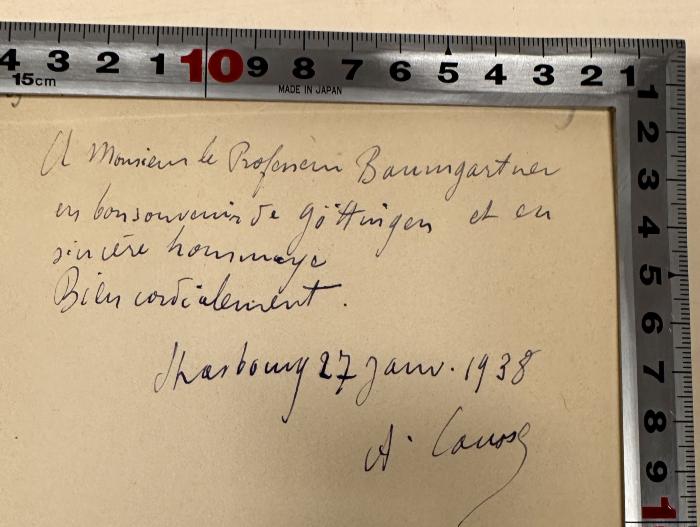 4 3 2 1 10 9 8 7 6 5 4 3 2 1
15cm
MADE IN JAPAN
1
2
3
4
5
6
7
8
9
1
A Monsieur le Professeur Baumgartner
en bon souvenir de Göttingen et en
sincère hommage
Bien cordialement.
Strasbourg 27 janv. 1938
A.